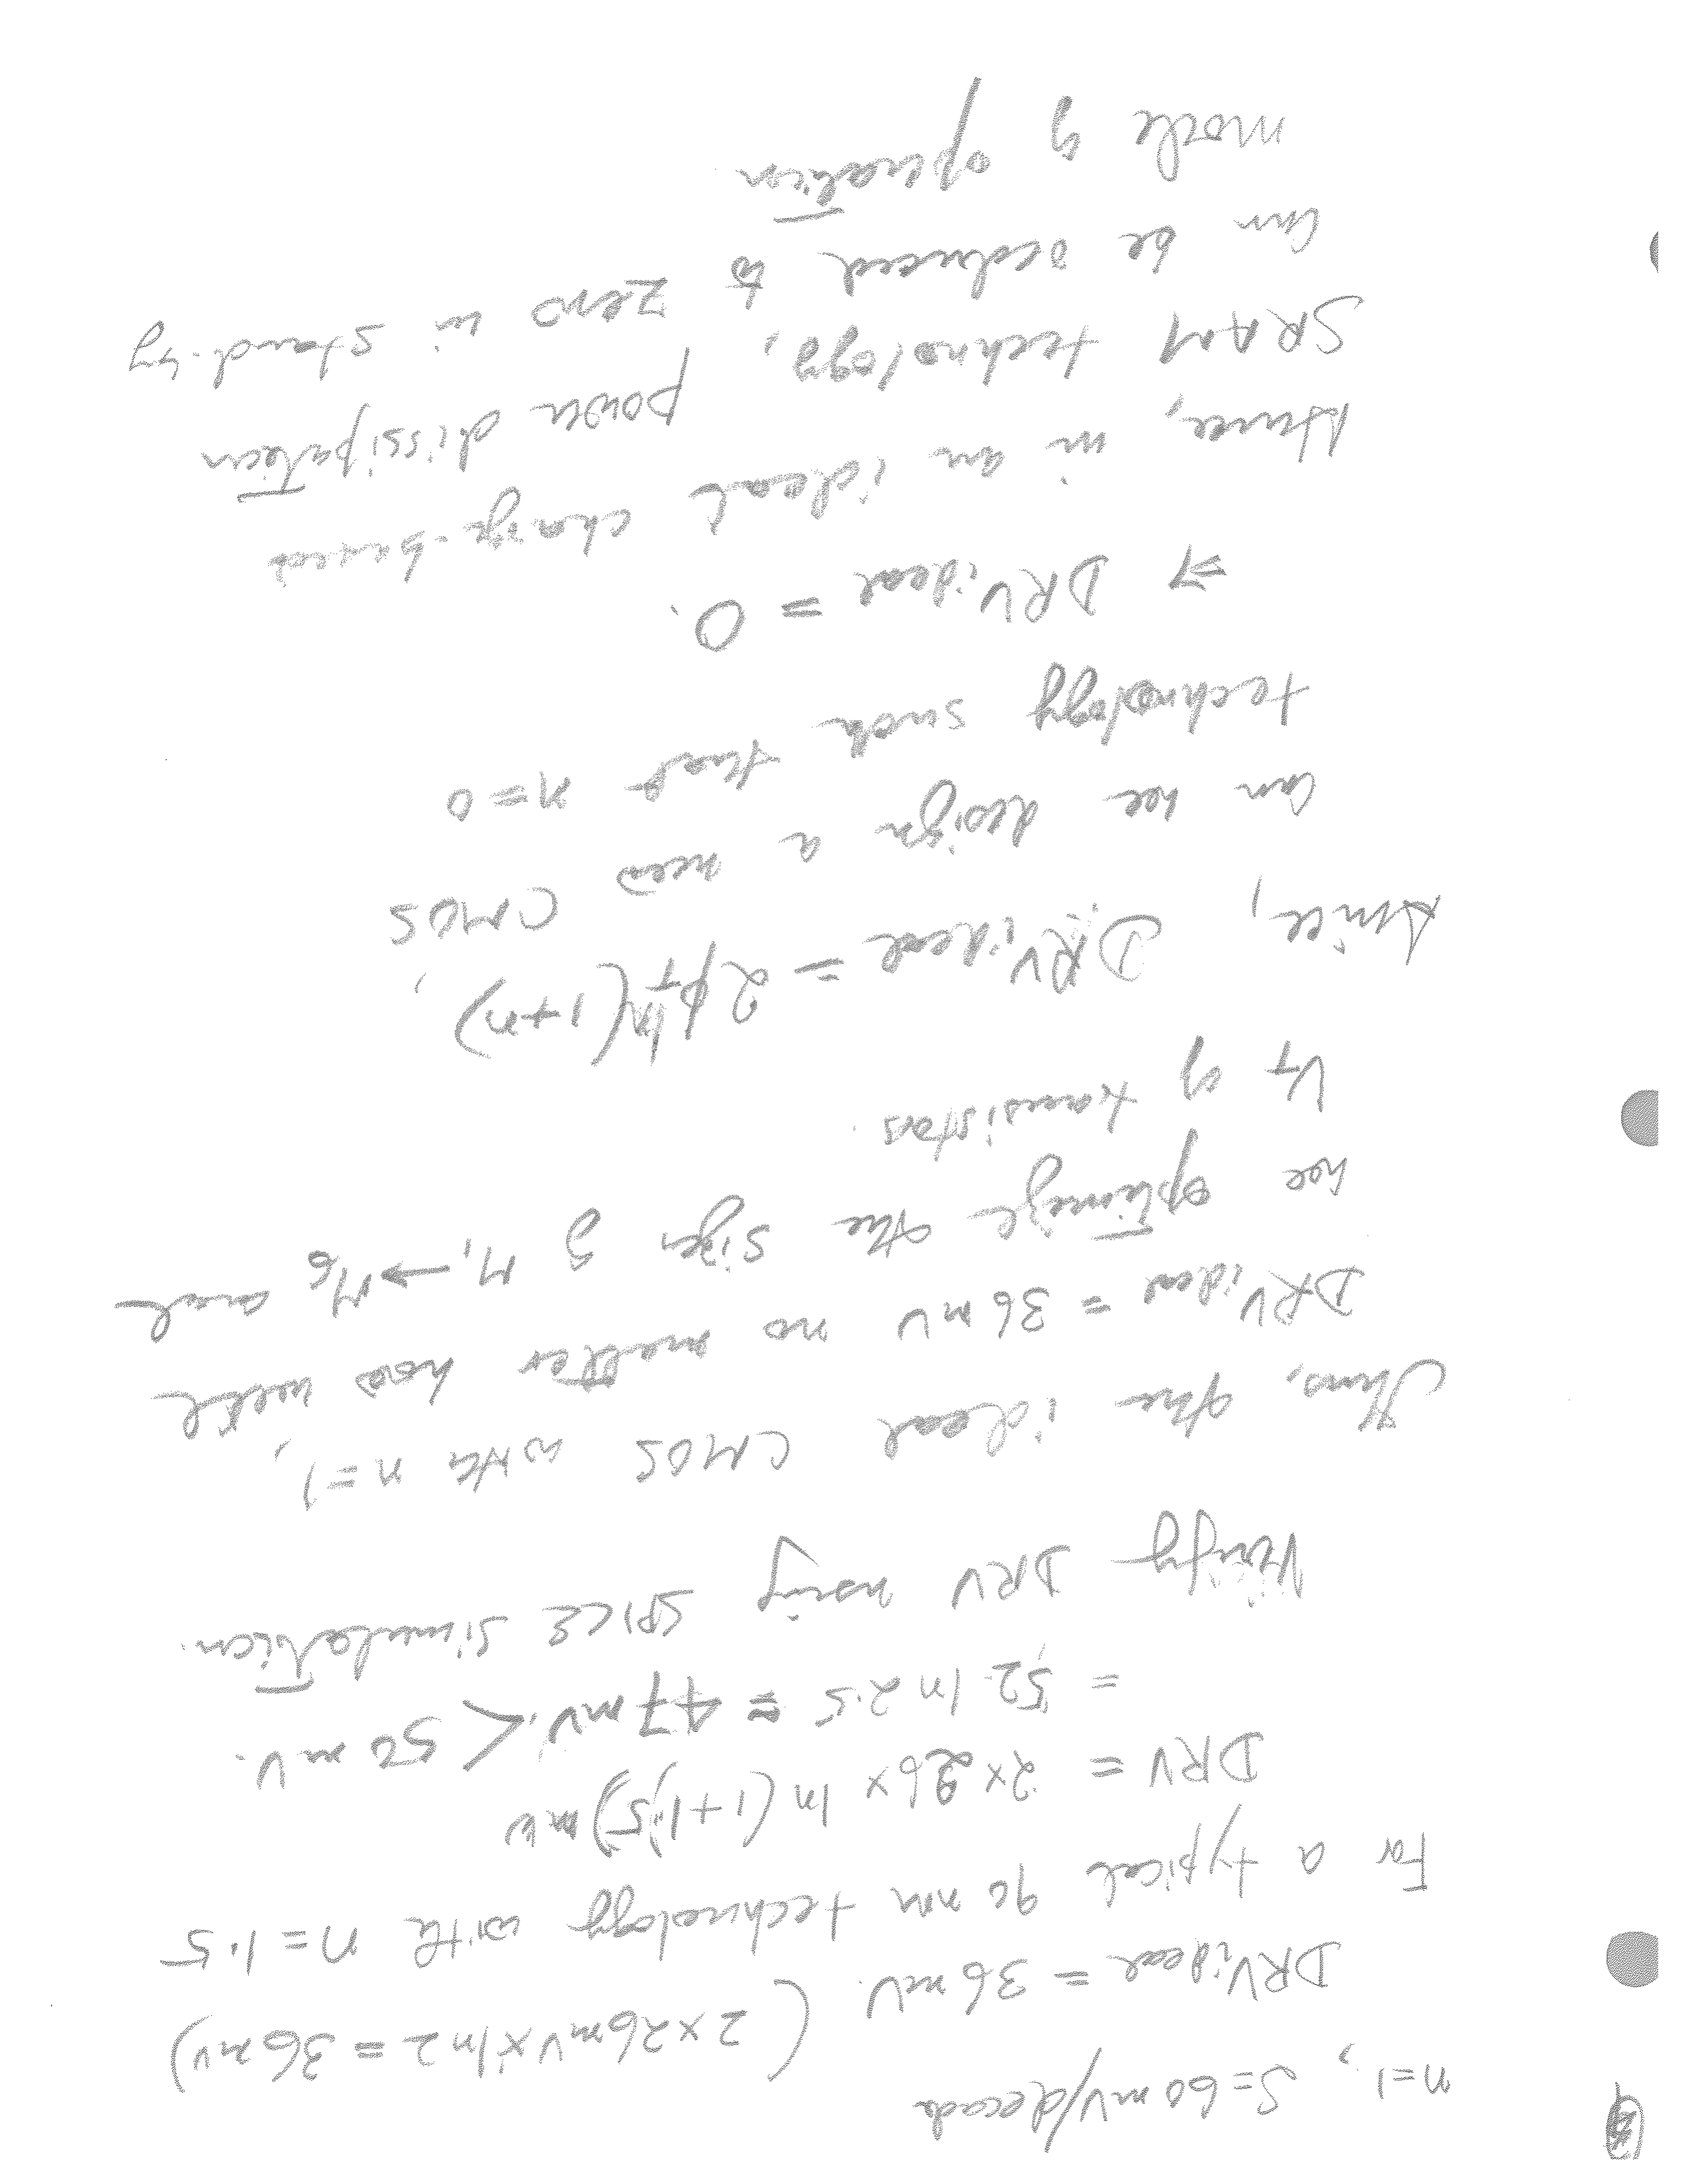 n=1, S=60 mV/decade
DRVideal = 36 mV. (2×26mV×ln2 = 36mV)
For a typical 90 nm technology with n=1.5
DRV = 2×26× ln(1+1.5) mV
= 52 ln 2.5 = 47 mV. < 50 mV.
Verify DRV using SPICE simulation.
Thus, the ideal CMOS with n=1,
DRVideal = 36 mV no matter how well
we optimize the sizes of M1 → M6 and
VT of transistors.
Since, DRVideal = 2ϕT ln(1+n),
can we design a new CMOS
technology such that n=0
⇒ DRVideal = 0.
Hence, in an ideal charge-based
SRAM technology, power dissipation
can be reduced to zero in stand-by
mode of operation